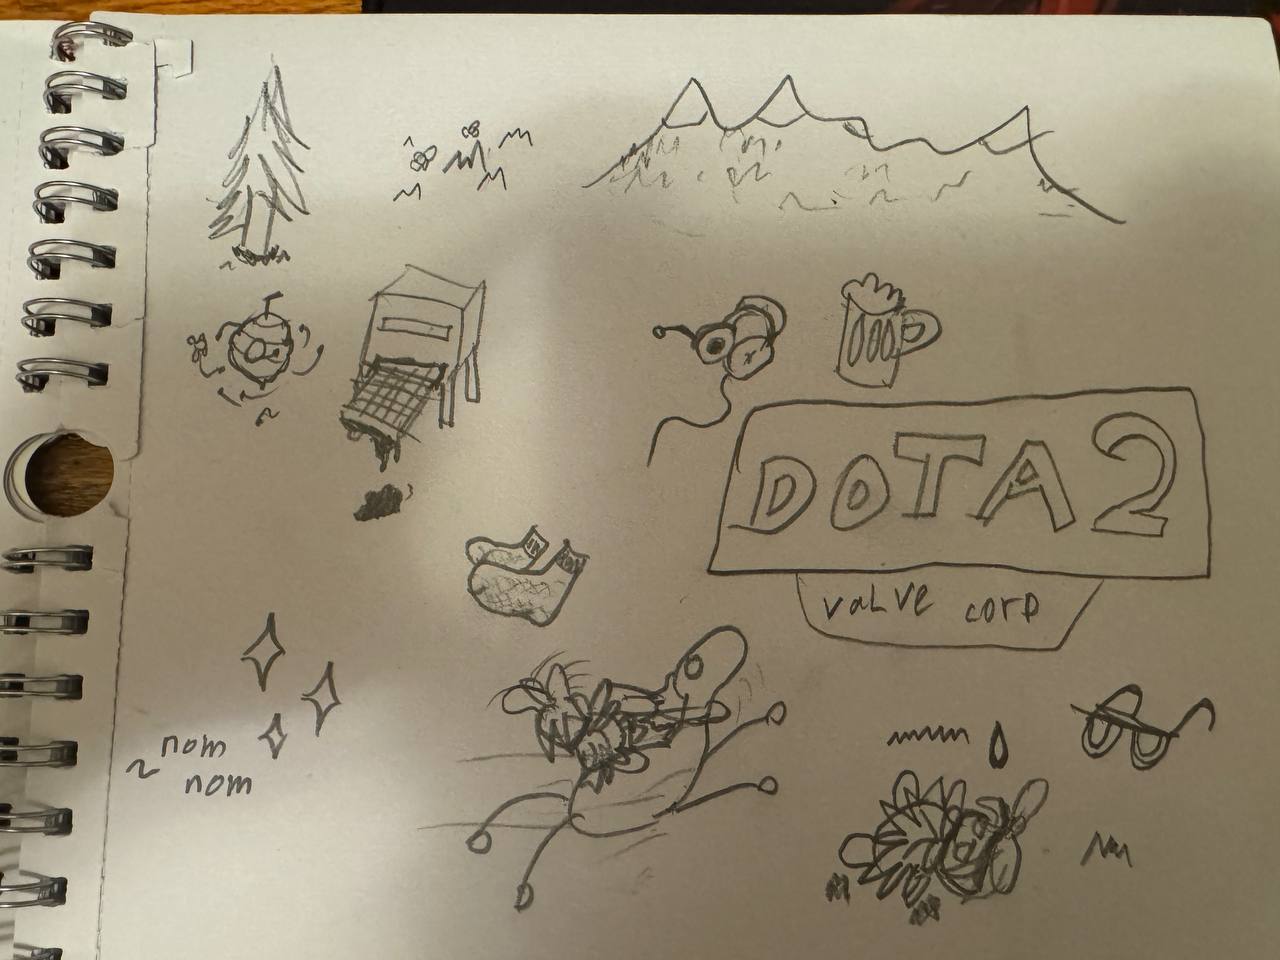 DOTA 2
valve corp
nom
nom